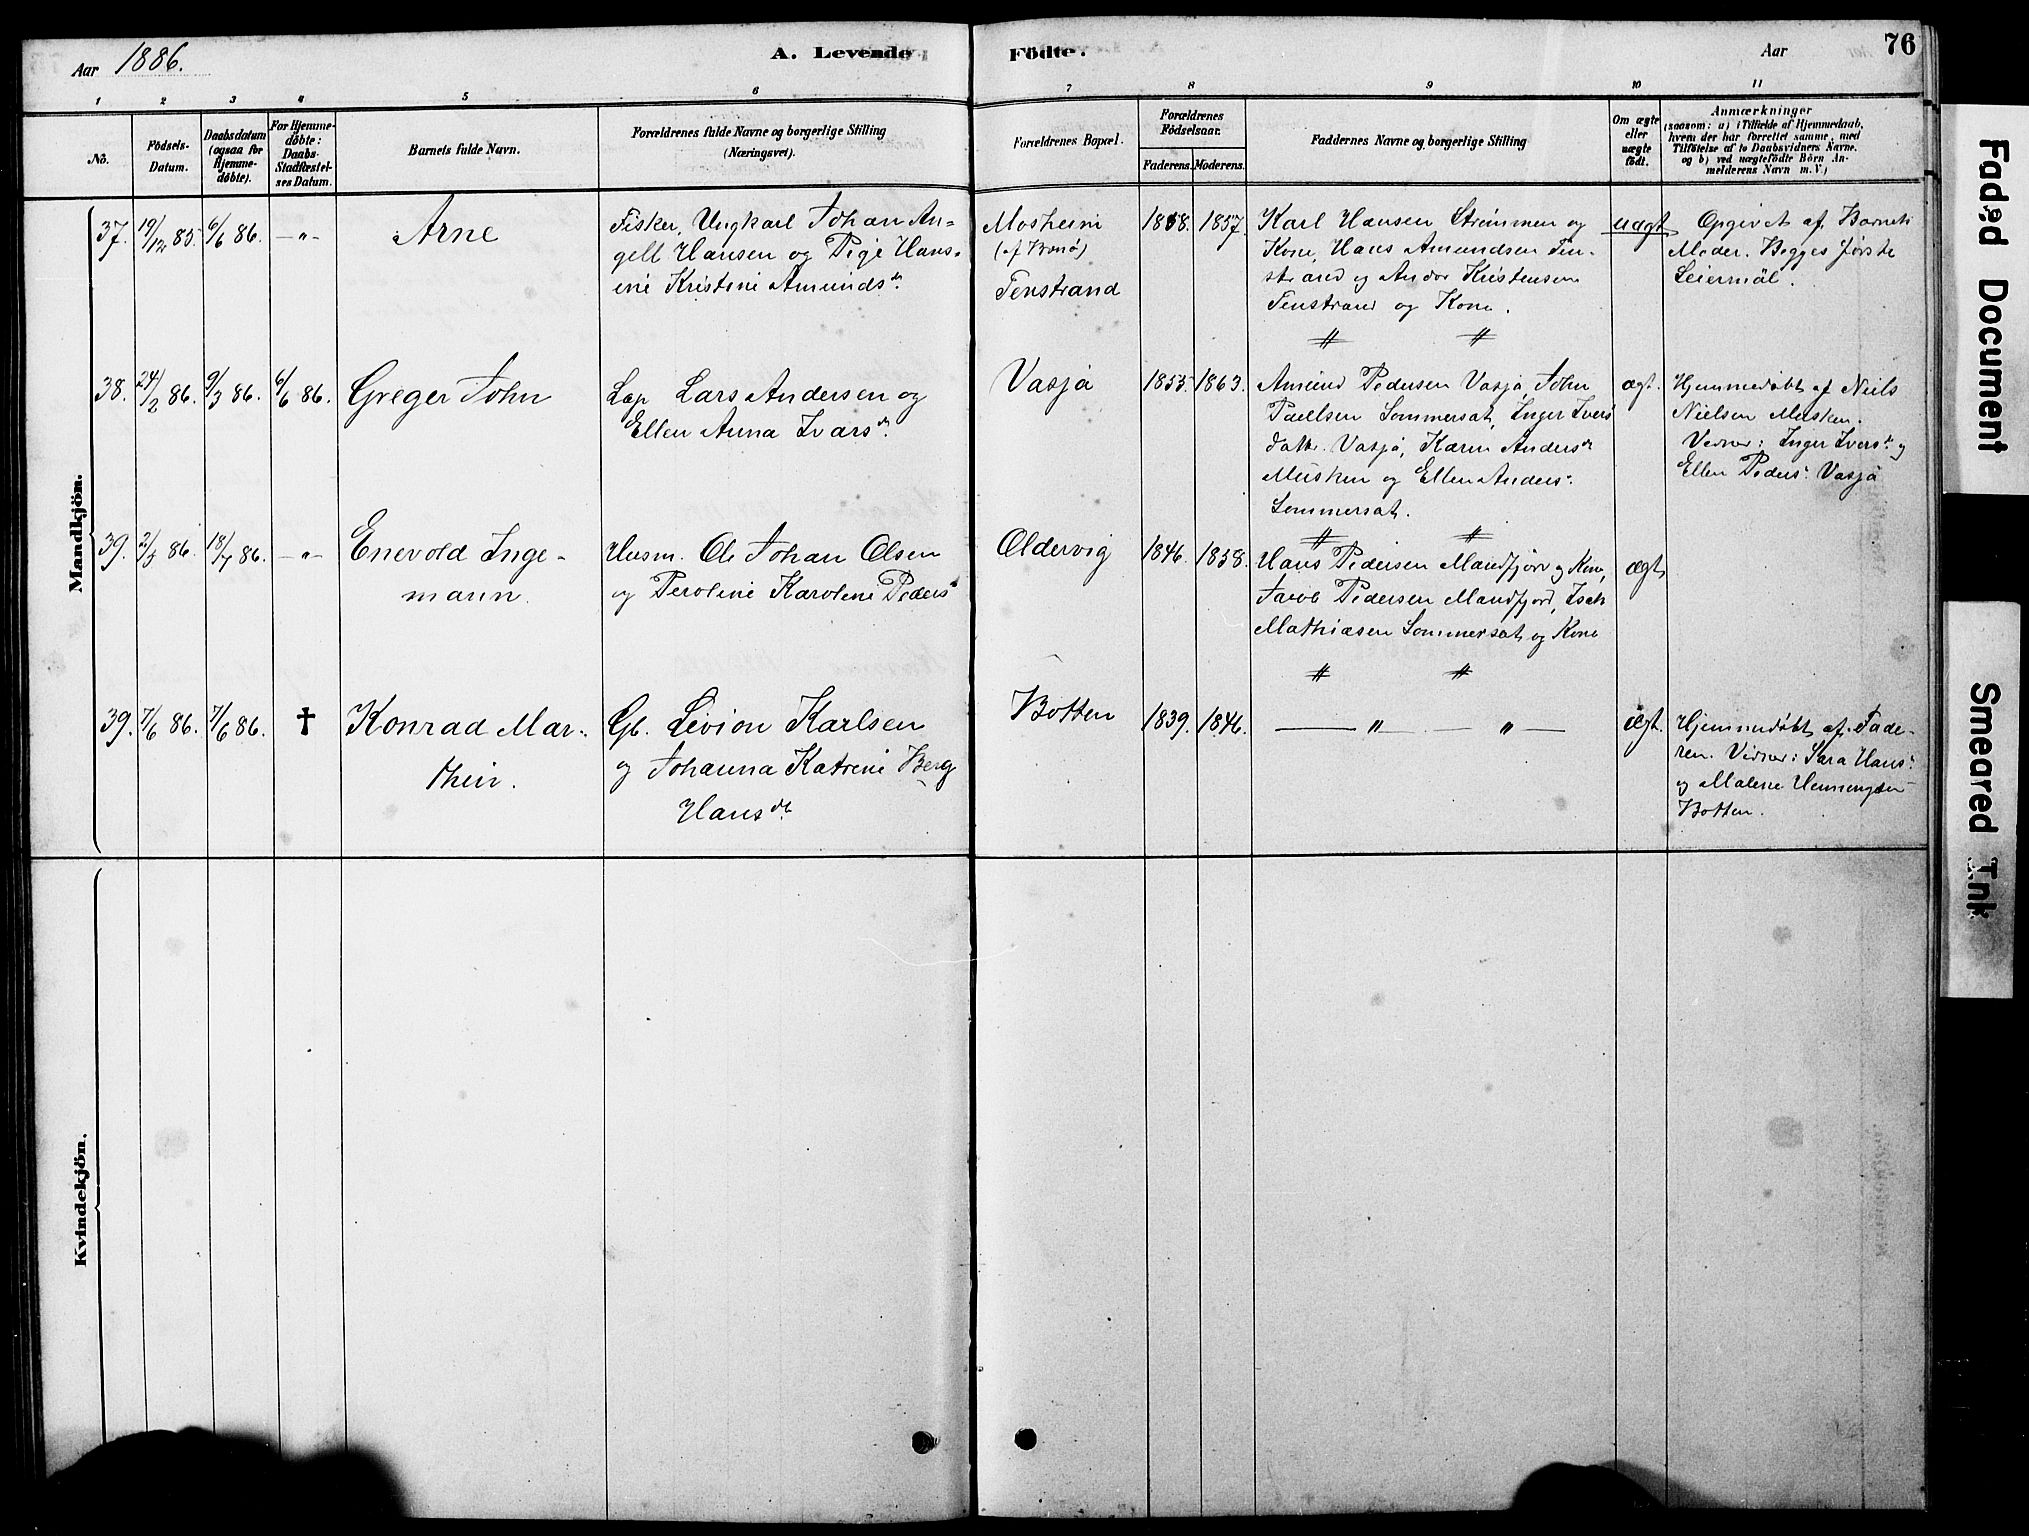 Aar 1886.
A. Levende
Födte.
Aar
76
1 2 3 4 5 6 7 8 9 10 11
No.
Födsels-
Datum.
Daabsdatum
(ogsaa for
Hjemme-
döbte).
For Hjemme-
döbte:
Daabs-
Stadfæstel-
ses Datum.
Barnets fulde Navn.
Forældrenes fulde Navne og borgerlige Stilling
(Næringsvei).
Forældrenes Bopæl.
Forældrenes
Födselsaar.
Faderens. Moderens.
Faddernes Navne og borgerlige Stilling
Om ægte
eller
uægte
födt.
Anmærkninger
(saasom: a) i Tilfælde af Hjemmedaab,
hvem der har forrettet samme, med
Tilföielse af to Daabsvidners Navne.
og b) ved uægtefödte Börn An-
melderens Navn m. V.)
Mandkjön.
37. 19/12 85. 6/6 86. —"—
Arne
Fisker, Ungkarl Johan An-
gell Hansen og Pige Hans-
ine Kristine Amundsdr.
Mosheim
(af Bonö)
Tenstrand
1858. 1857.
Karl Hansen Strømmen og
Kone, Hans Amundsen Ten-
strand og Andor Kristensen
Tenstrand og Kone.
uægt
Opgivet af Barnets
Moder. Begges første
Leiermål.
38. 24/2 86. 9/3 86. 6/6 86.
Greger John
Lap Lars Andersen og
Ellen Anna Ivarsdr.
Vasjà
1855. 1863.
Amund Pedersen Vasjà, John
Paulsen Sommersat, Inger Ivers
datr. Vasjà, Karen Andersdr
Musken og Ellen Anders:
Sommersat.
ægt.
Hjemmedøbt af Niels
Nielsen Musken.
Vidner: Inger Ivers: og
Ellen Peders: Vasjà
39. 2/5 86. 18/7 86. —"—
Enevold Inge-
mann.
Husm. Ole Johan Olsen
og Peroline Karoline Peders
Oldervig
1846. 1858.
Hans Pedersen Mandfjord og Kone,
Jacob Pedersen Mandfjord, Isak
Mathiasen Sommersat og Kone
ægt.
39. 7/6 86. 7/6 86. †
Konrad Mar-
thin.
Gb. Sivion Karlsen
og Johanna Katrine Berg
Hansdr.
Botten
1839. 1846.
—— " —— — " —
ægt.
Hjemmedøbt af Fade-
ren. Vidner: Sara Hans:
og Malene Henningsen
Botten.
Kvindekjön.
Faded Document
Smeared Ink